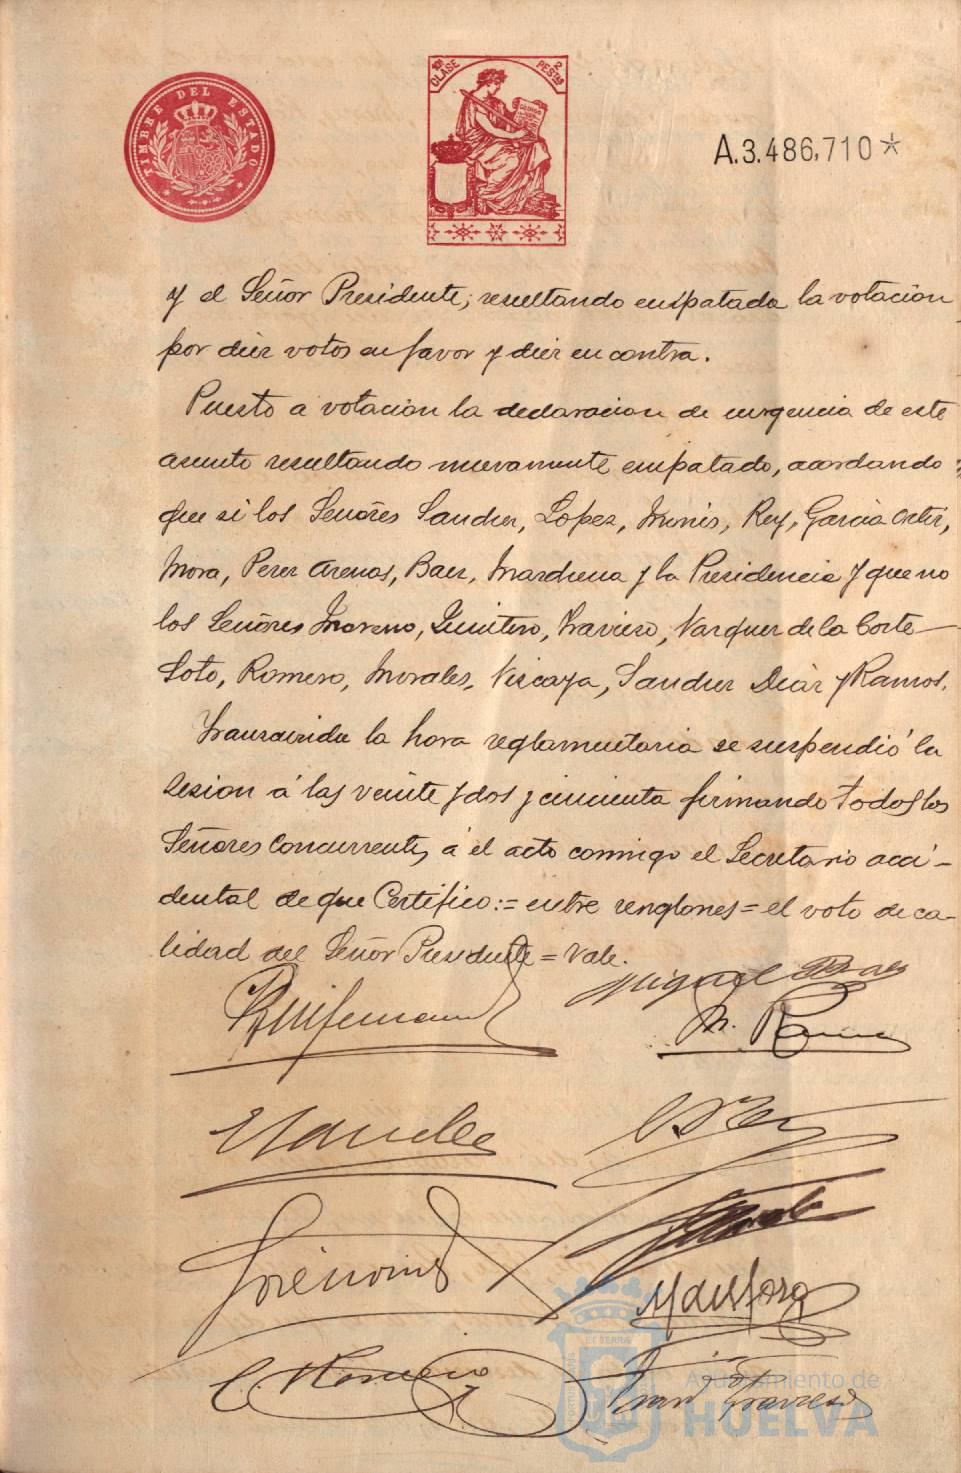 TIMBRE DEL ESTADO
10ª CLASE
2 PESTAS
A.3.486,710*
y el Señor Presidente; resultando enspatada la votacion
por diez votos en favor y diez en contra.
Puesto a votacion la declaracion de urgencia de este
asunto resultando nuevamente empatado, acordando
que si los Señores Sanchez, Lopez, Monis, Rey, Garcia Ortiz,
Mora, Perez Arenas, Baez, Marchena y la Presidencia y que no
los Señores Moreno, Quintero, Traviezo, Vazquez de la Corte
Soto, Romero, Morales, Viscaya, Sanchez Diaz y Ramos.
Transcurrida la hora reglamentaria se suspendió la
sesion á las veinte y dos y cincuenta firmando todos los
Señores Concurrentes á el acto conmigo el Secretario acci-
dental de que Certifico:= entre renglones = el voto de ca-
lidad del Señor Presidente = Vale.
Miguel Baez
M. Ramos
José Monis
M. de la Mora
C. Romero
Juan Traviezo
Ayuntamiento de
HUELVA